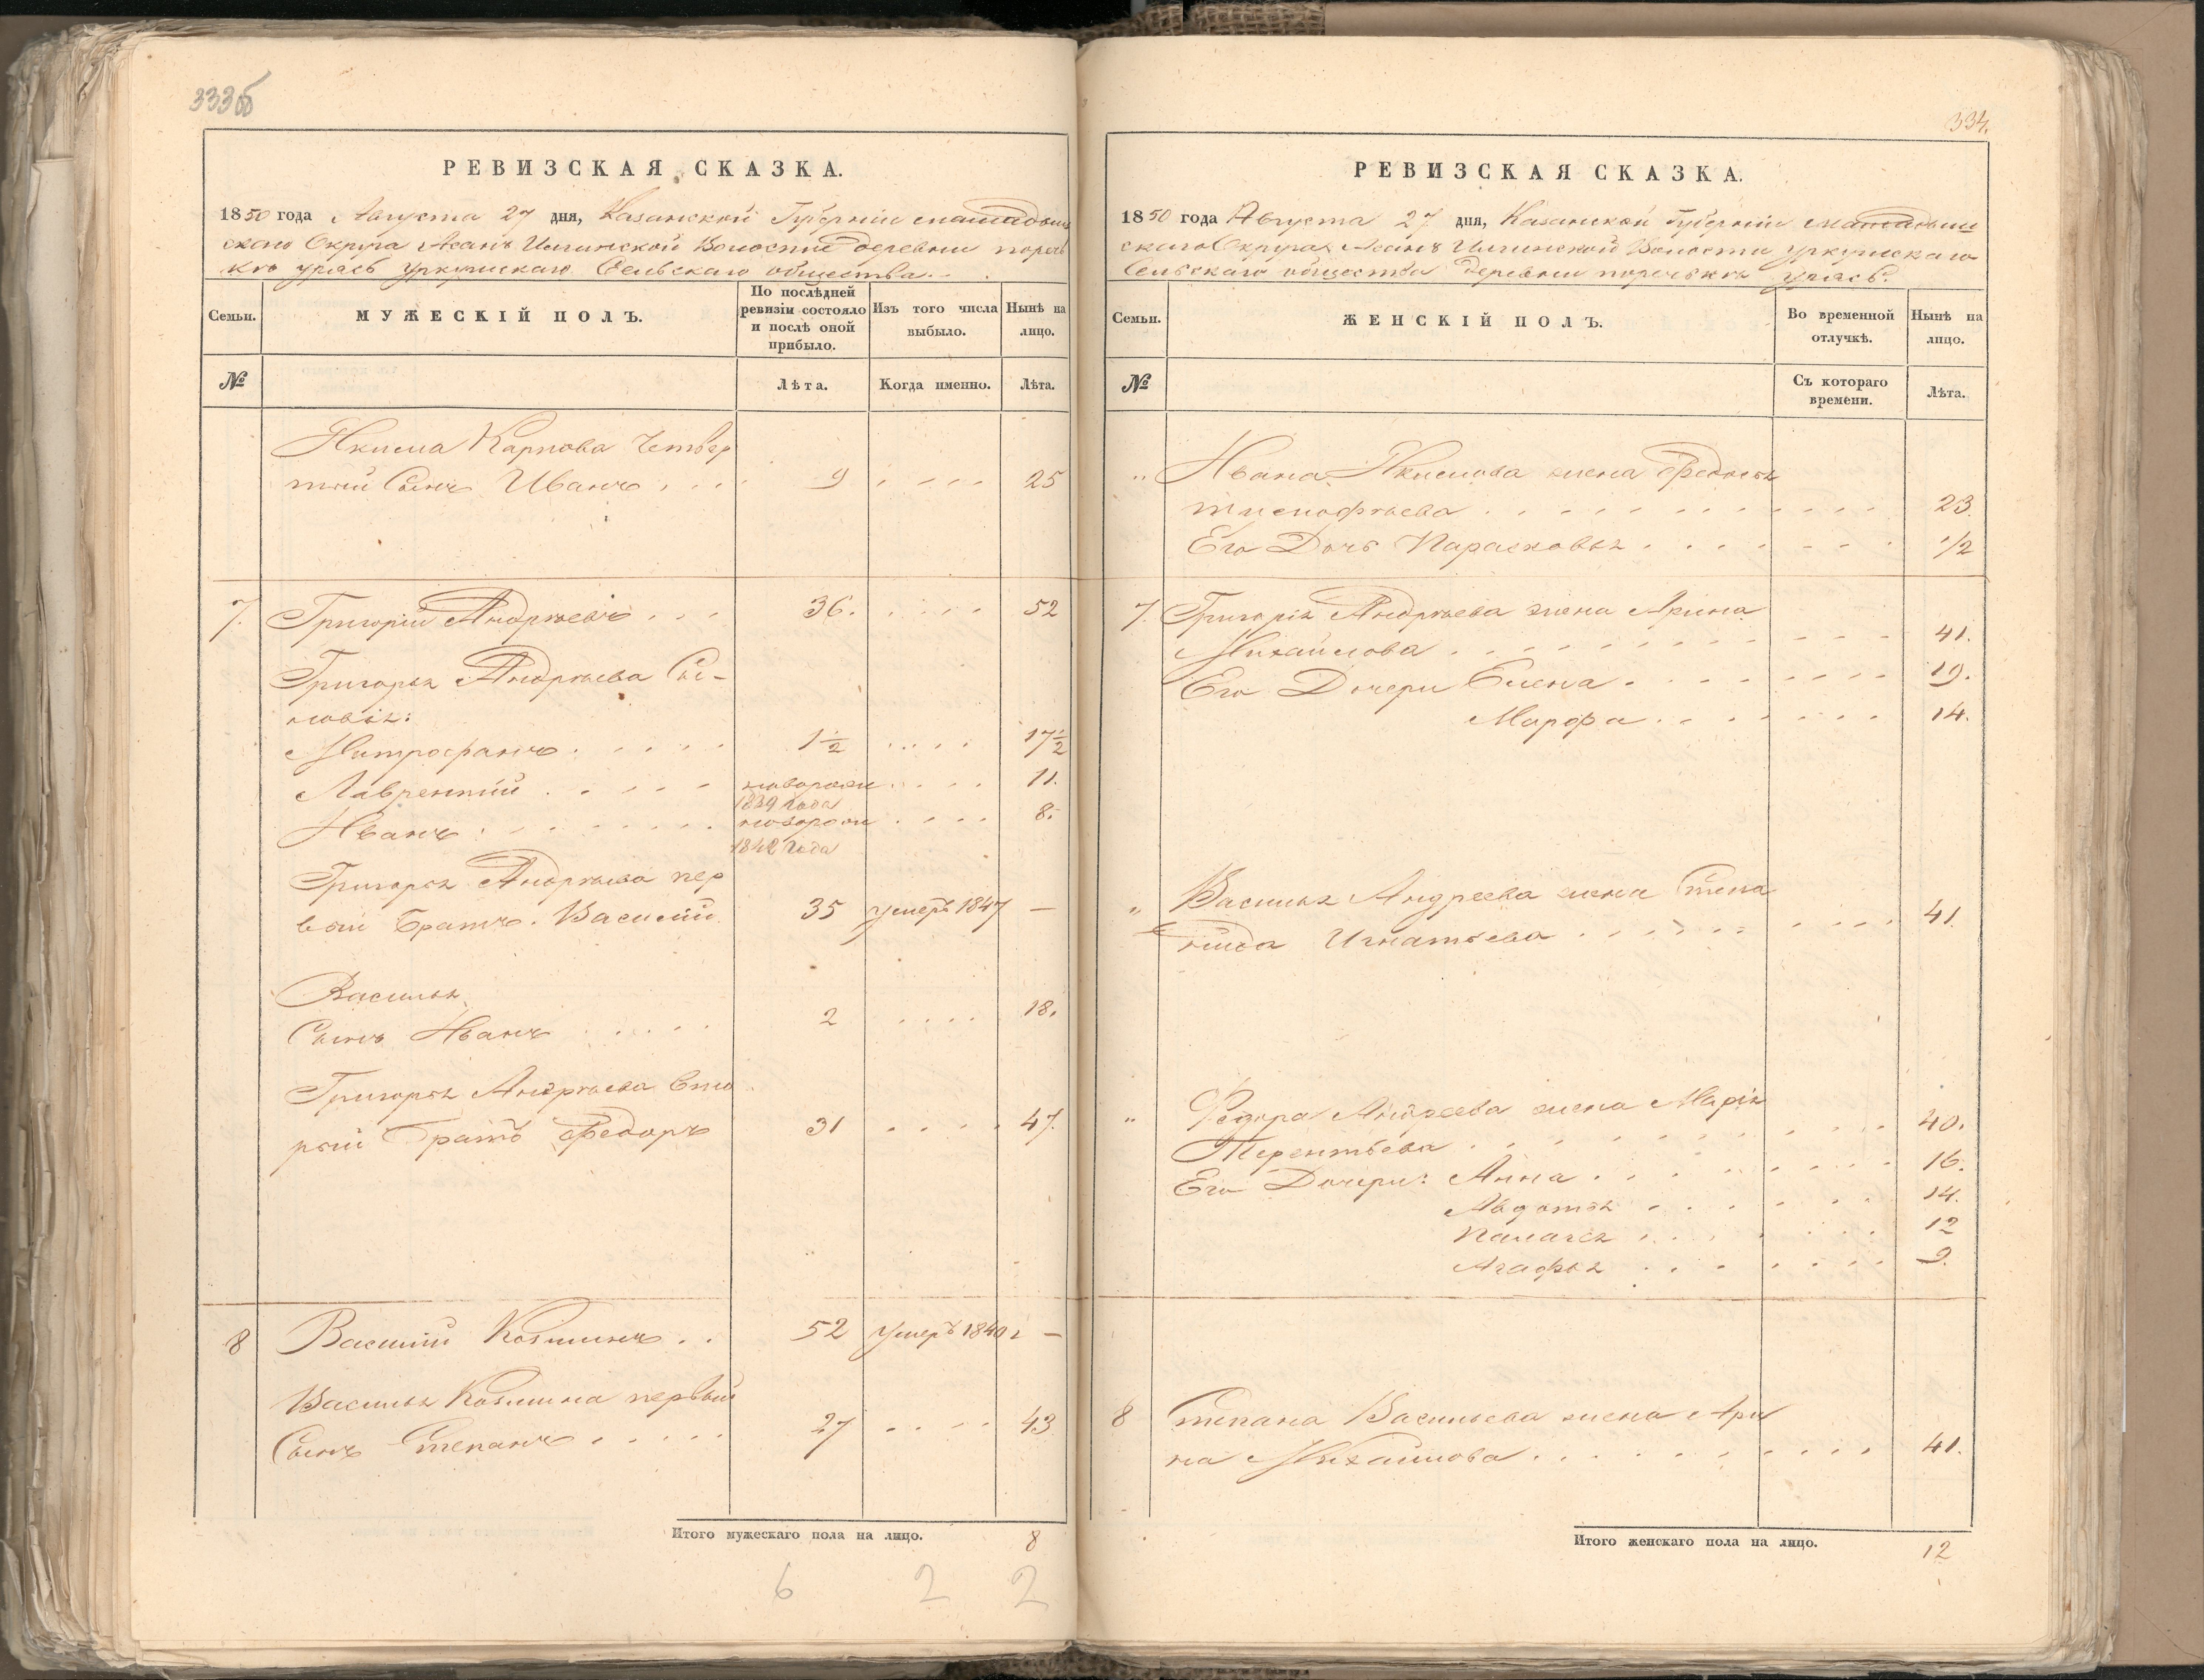 333об
РЕВИЗСКАЯ СКАЗКА.
1850 года Августа 27 дня, Казанской Губерніи мамадыш
скаго Округа Асанъ Илгинской Волости деревни пореч
кго урясь уркушскаго Сельскаго общества.
Семьи.
МУЖЕСКІЙ ПОЛЪ.
По послѣдней ревизіи состояло и послѣ оной прибыло.
Изъ того числа выбыло.
Нынѣ на лицо.
№
Лѣта.
Когда именно.
Лѣта.
Якима Карпова Четвер
тый Сынъ Иванъ 9 25
7. Григорій Андрѣевъ 36. 52
Григорья Андрѣева Сы-
новья:
Митрофанъ 1 1/2 17 1/2
Лаврентій новорожд 11.
1839 года
Иванъ новорож 8.
1842 года
Григорья Андрѣева пер
вый Братъ Василій 35 умеръ 1847 —
Василья
Сынъ Иванъ 2 18.
Григорья Андрѣева Вто
рый Братъ Федоръ 31 47.
8 Василій Козминъ 52 умеръ 1840г —
Василья Козмина первый
Сынъ Степанъ 27 43
Итого мужескаго пола на лицо. 8
6 2 2
334.
РЕВИЗСКАЯ СКАЗКА.
1850 года Августа 27 дня, Казанской Губерніи мамадыш
скаго Округа Асанъ Илгинской Волости уркушскаго
Сельскаго общества деревни поречькгъ урясь.
Семьи.
ЖЕНСКІЙ ПОЛЪ.
Во временной отлучкѣ.
Нынѣ на лицо.
№
Съ котораго времени.
Лѣта.
" Ивана Якимова жена Федосья
тимофѣева 23
Его Дочь Парасковья 1/2
7. Григорія Андрѣева жена Арина
Михайлова 41.
Его Дочери Елена 19.
Марфа 14.
" Василья Андреева жена Степа
нида Игнатьева 41.
" Федора Андреева жена Марія
Терентьева 40.
Его Дочери: Анна 16.
Авдотья 14.
Палагея 12
Агафья 9.
8 Степана Васильева жена Ари
на Михайлова 41.
Итого женскаго пола на лицо. 12